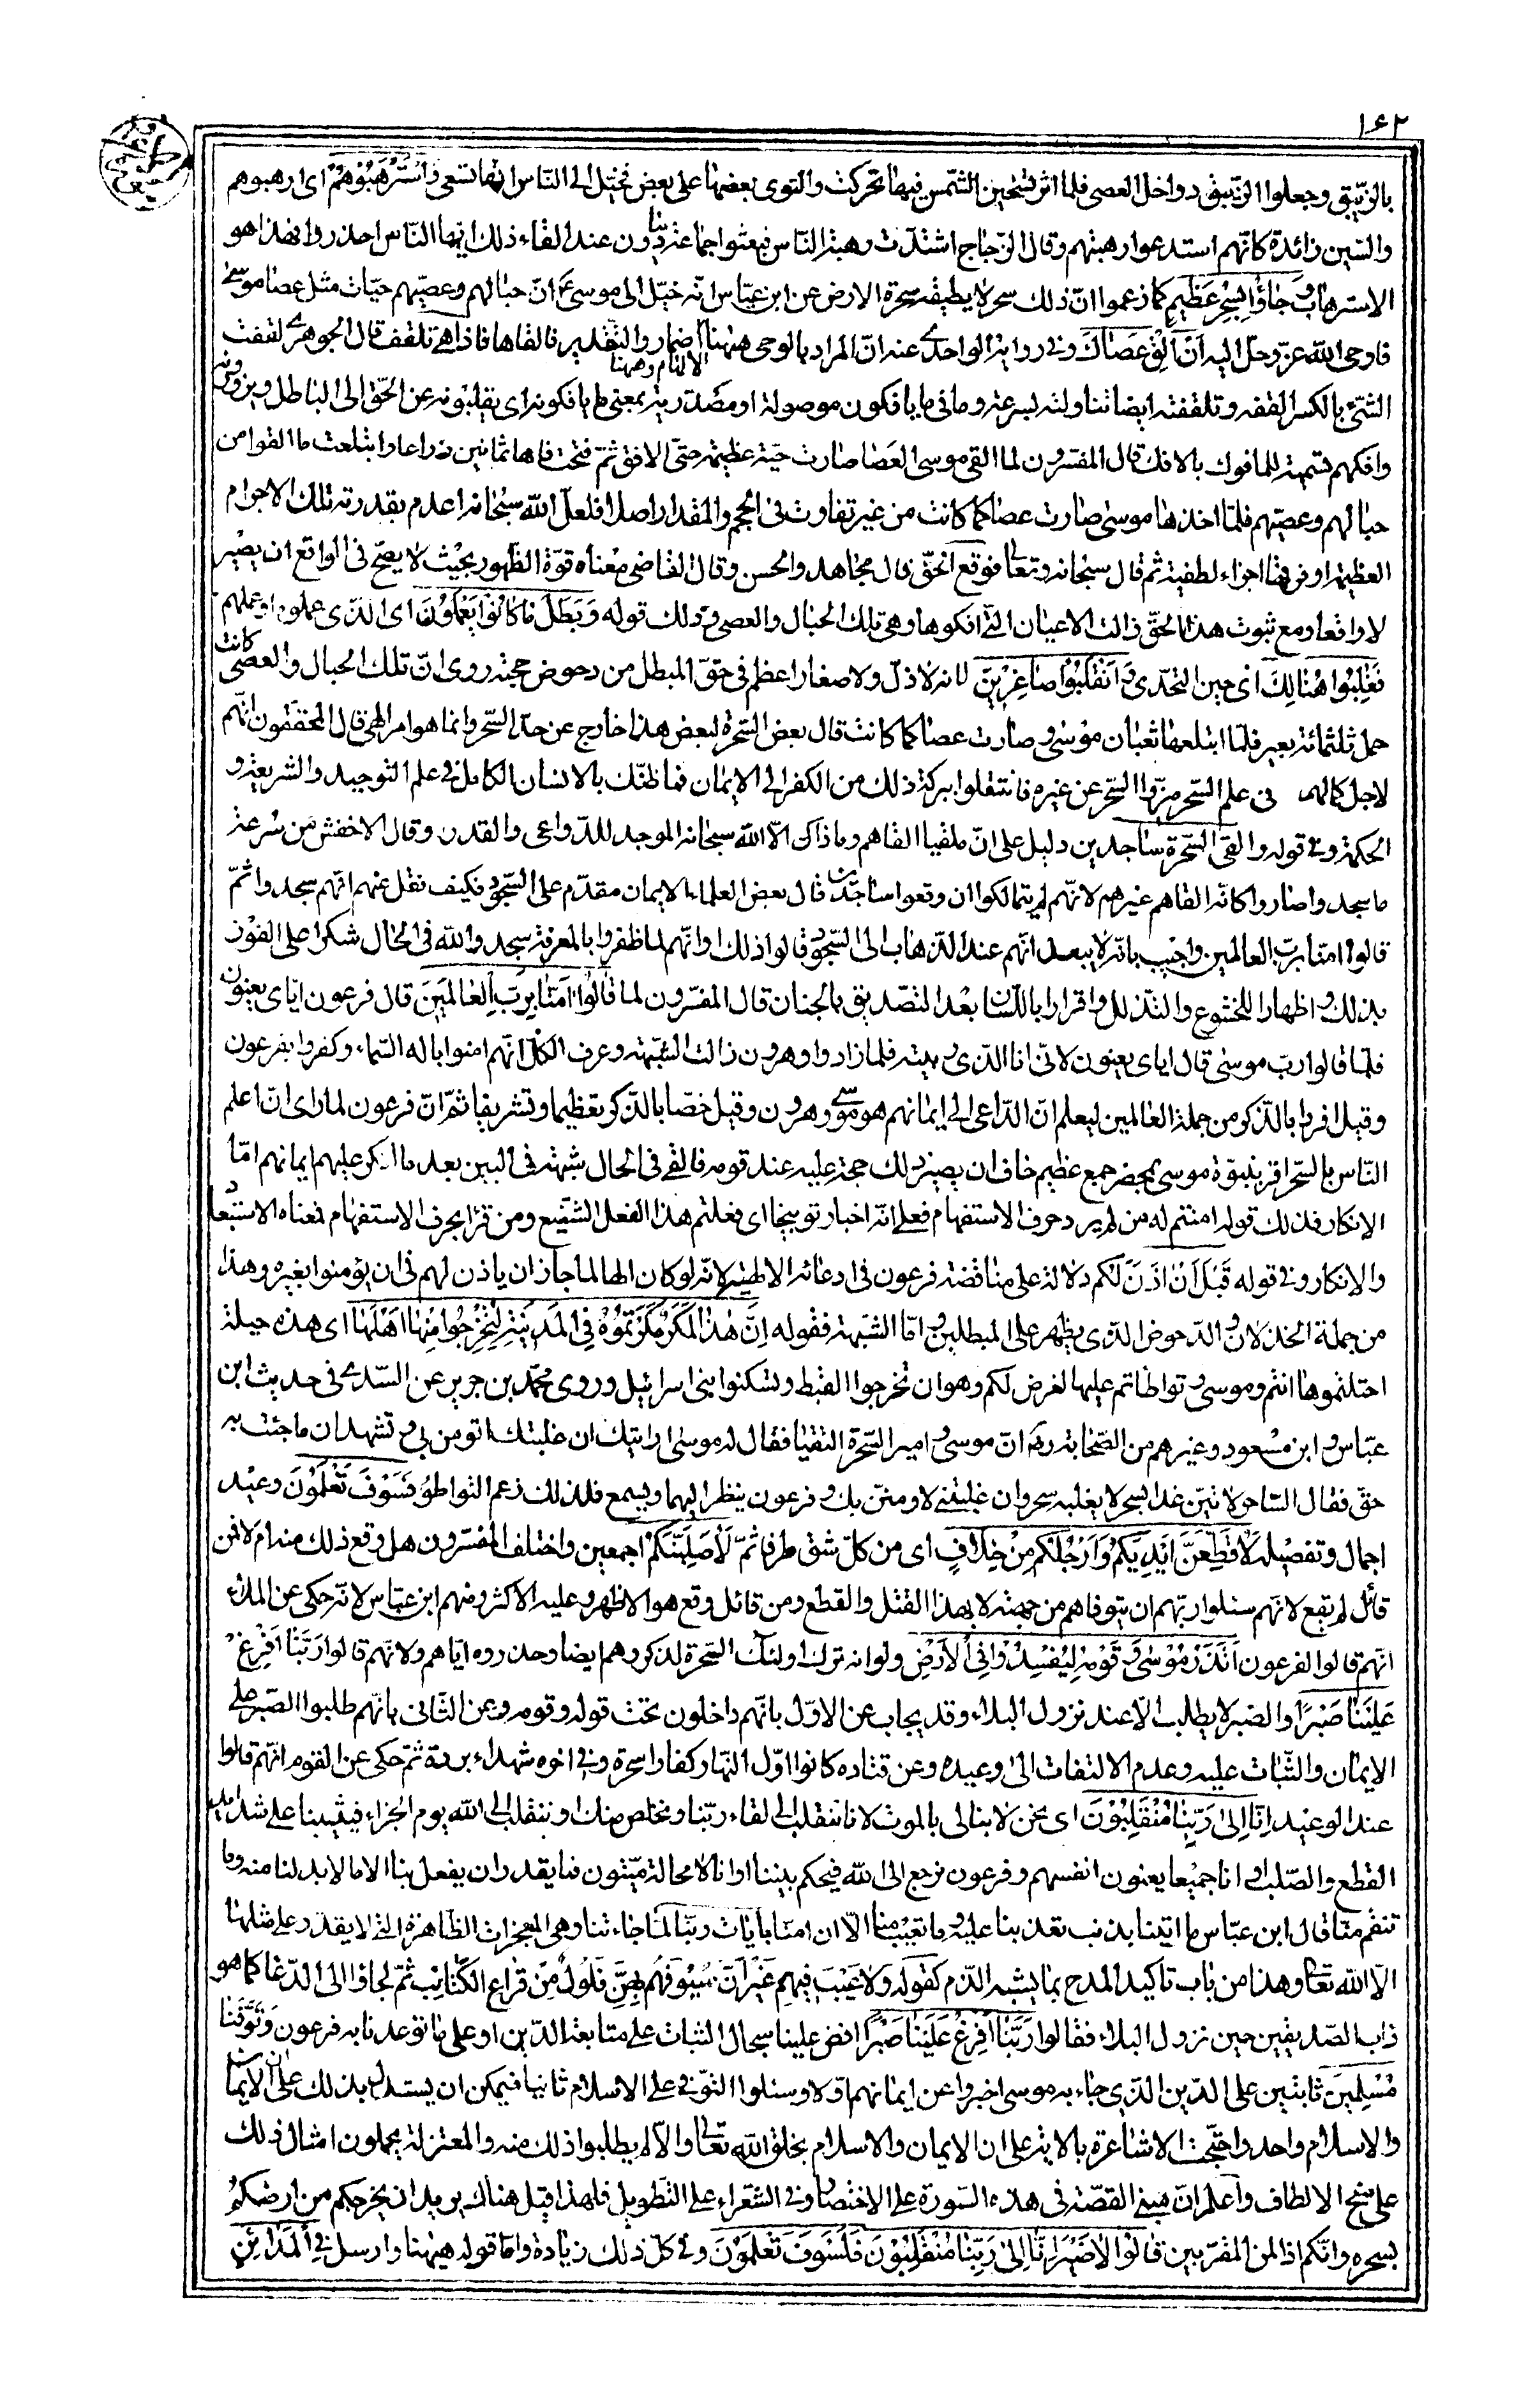 ١٦٢
بالزيبق وجعلوا الزيبق دواخل العصى فلما اثر تسخين الشمس فيها تحركت والتوى بعضها على بعض فخيل الى الناس انها تسعى وَاسْتَرْهَبُوْهُمْ اى ارهبوهم
والسين زائدة كانهم استدعوا رهبتهم وقال الزجاج اشتدت رهبة الناس فبعثوا جماعة ينادون عند القاء ذلك ايها الناس احذروا فهذا هو
الاسترهاب وَجَاؤُا بِسِحْرٍ عَظِيمٍ كما زعموا ان ذلك سحر لا يطيقه سحرة الارض عن ابن عباس انه خيل الى موسى ع ان حبالهم وعصيهم حيات مثل عصا موسى
فاوحى الله عز وجل اليه اَنْ اَلْقِ عَصَاكَ وفى رواية الواحدى عنه ان المراد بالوحى ههنا الالهام وههنا اضمار والتقدير فالقاها فاذا هى تلقف قال الجوهرى لقفت
الشئ بالكسر القفه وتلقفته ايضا تناولته بسرعة وما فى ما يافكون موصولة او مصدرية بمعنى ما يافكونه اى يقلبونه عن الحق الى الباطل ويزورونه
وافكهم تسمية للمافوك بالافك قال المفسرون لما القى موسى العصا صارت حية عظيمة حتى الافق ثم فتحت فاها ثمانين ذراعا وابتلعت ما القوا من
حبالهم وعصيهم فلما اخذها موسى صارت عصا كما كانت من غير تفاوت فى الحجم والمقدار اصلا فلعل الله سبحانه اعدم بقدرته تلك الاجرام
العظيمة او فرقها اجزاء لطيفة ثم قال سبحانه وتعالى فوقع الحق قال مجاهد والحسن وقال القاضى معناه قوة الظهور بحيث لا يصح فى الواقع ان يصير
لا واقعا ومع ثبوت هذا الحق زالت الاعيان التى افكوها وهى تلك الحبال والعصى وذلك قوله وَبَطَلَ مَا كَانُوْا يَعْمَلُوْنَ اى الذى عملوه او عملهم
فَغُلِبُوا هُنَالِكَ اى حين التحدى وَانْقَلَبُوْا صَاغِرِيْنَ لانه لا ذل ولا صغار اعظم فى حق المبطل من دحوض حجته روى ان تلك الحبال والعصى كانت
حمل ثلثمائة بعير فلما ابتلعها ثعبان موسى وصارت عصا كما كانت قال بعض السحرة لبعض هذا خارج عن حد السحر وانما هو امر الهى قال المحققون انهم
لاجل كمالهم فى علم السحر ميزوا السحر عن غيره فانتقلوا ببركة ذلك من الكفر الى الايمان فما ظنك بالانسان الكامل فى علم التوحيد والشريعة و
الحكمة وفى قوله والقى السحرة ساجدين دليل على ان ملقيا القاهم وما ذاك الا الله سبحانه الموجد للدواعى والقدر وقال الاخفش من سرعة
ما سجدوا صاروا كانه القاهم غيرهم لانهم لم يتمالكوا ان وقعوا ساجدين قال بعض العلماء الايمان مقدم على السجود فكيف نقل عنهم انهم سجدوا ثم
قالوا امنا برب العالمين واجيب بانه لا يبعد انهم عند الذهاب الى السجود قالوا ذلك او انهم لما ظفروا بالمعرفة سجدوا لله فى الحال شكرا على الفوز
بذلك واظهارا للخشوع والتذلل واقرارا باللسان بعد التصديق بالجنان قال المفسرون لما قَالُوْا اٰمَنَّا بِرَبِّ الْعَالَمِيْنَ قال فرعون اياى يعنون
فلما قالوا رب موسى قال اياى يعنون لانى انا الذى ربيته فلما زادوا وهرون زالت الشبهة وعرف الكل انهم امنوا باله السماء وكفروا بفرعون
وقيل افردا بالذكر من جملة العالمين ليعلم ان الداعى الى ايمانهم هو موسى وهرون وقيل خصا بالذكر تعظيما وتشريفا ثم ان فرعون لما راى ان اعلم
الناس بالسحر اقر بنبوة موسى بمحضر جمع عظيم خاف ان يصير ذلك حجة عليه عند قومه فالقى فى الحال شبهة فى البين بعد ما انكر عليهم ايمانهم اما
الانكار فذلك قوله امنتم له من لم يرد حرف الاستفهام فعلى انه اخبار توبيخا اى فعلتم هذا الفعل الشنيع ومن قرا بحرف الاستفهام فمعناه الاستبعاد
والانكار وفى قوله قَبْلَ اَنْ اٰذَنَ لَكُمْ دلالة على مناقضة فرعون فى ادعائه الالهية لانه لو كان الها لما جاز ان ياذن لهم فى ان يؤمنوا بغيره وهذا
من جملة الخذلان والدحوض الذى يظهر على المبطلين واما الشبهة فقوله اِنَّ هٰذَا لَمَكْرٌ مَكَرْتُمُوْهُ فِي الْمَدِيْنَةِ لِتُخْرِجُوا مِنْهَا اَهْلَهَا اى هذه حيلة
احتلتموها انتم وموسى وتواطاتم عليها لغرض لكم وهو ان تخرجوا القبط وتسكنوا بنى اسرائيل وروى محمد بن جرير عن السدى فى حديث ابن
عباس وابن مسعود وغيرهم من الصحابة رض ان موسى وامير السحرة التقيا فقال له موسى ارايتك ان غلبتك اتومن بى وتشهد ان ما جئت به
حق فقال الساحر لاتين غدا بسحر لا يغلبه سحر وان غلبتنى لاومنن بك وفرعون ينظر اليهما ويسمع فلذلك زعم التواطؤ فَسَوْفَ تَعْلَمُوْنَ وعيد
اجمال وتفصيله لَاُقَطِّعَنَّ اَيْدِيَكُمْ وَاَرْجُلَكُمْ مِنْ خِلَافٍ اى من كل شق طرفا ثم لَاُصَلِّبَنَّكُمْ اجمعين واختلف المفسرون هل وقع ذلك منه ام لا فمن
قائل لم يقع لانهم سئلوا ربهم ان يتوفاهم من جهته لا بهذا القتل والقطع ومن قائل وقع هو الاظهر وعليه الاكثر ومنهم ابن عباس لانه حكى عن الملاء
انهم قالوا لفرعون اَتَذَرُ مُوْسٰى وَقَوْمَهُ لِيُفْسِدُوْا فِي الْاَرْضِ ولو انه ترك اولئك السحرة لذكروهم ايضا وحذروه اياهم ولانهم قالوا رَبَّنَا اَفْرِغْ
عَلَيْنَا صَبْرًا والصبر لا يطلب الا عند نزول البلاء وقد يجاب عن الاول بانهم داخلون تحت قوله وقومه وعن الثانى بانهم طلبوا الصبر على
الايمان والثبات عليه وعدم الالتفات الى وعيده وعن قتاده كانوا اول النهار كفارا سحرة وفى اخره شهداء بررة ثم حكى عن القوم انهم قالوا
عند الوعيد اِنَّا اِلٰى رَبِّنَا مُنْقَلِبُوْنَ اى نحن لا نبالى بالموت لانا ننقلب الى لقاء ربنا ونخلص منك او ننقلب الى الله يوم الجزاء فيثيبنا على شدائد
القطع والصلب او انا جميعا يعنون انفسهم وفرعون نرجع الى الله فيحكم بيننا او انا لا محالة ميتون فما يقدر ان يفعل بنا الا ما لا بد لنا منه وما
تنقم منا قال ابن عباس ما اتينا بذنب تعذبنا عليه وما تعيب منا الا ان امنا بايات ربنا لما جاءتنا وهى المعجزات الظاهرة التى لا يقدر على مثلها
الا الله تعالى وهذا من باب تاكيد المدح بما يشبه الذم كقوله وَلَا عَيْبَ فِيهِمْ غَيْرَ اَنَّ سُيُوْفَهُمْ بِهِنَّ فُلُوْلٌ مِنْ قِرَاعِ الْكَتَائِبِ ثم لجاؤا الى الدعا كما هو
داب الصديقين حين نزول البلاء فقالوا رَبَّنَا اَفْرِغْ عَلَيْنَا صَبْرًا افض علينا سجال الثبات على متابعة الدين او على ما توعدنا به فرعون وَتَوَفَّنَا
مُسْلِمِيْنَ ثابتين على الدين الذى جاء به موسى اخبروا عن ايمانهم اولا وسئلوا التوفى على الاسلام ثانيا فيمكن ان يستدل بذلك على ان الايمان
والاسلام واحد واحتجت الاشاعرة بالاية على ان الايمان والاسلام بخلق الله تعالى والا لم يطلبوا ذلك منه والمعتزلة يحملون امثال ذلك
على منح الالطاف واعلم ان مبنى القصة فى هذه السورة على الاختصار وفى الشعراء على التطويل فلهذا قيل هناك يريد ان يخرجكم من ارضكم
بسحره وانكم اذا لمن المقربين قَالُوا لَا ضَيْرَ اِنَّا اِلٰى رَبِّنَا مُنْقَلِبُوْنَ فَلَسَوْفَ تَعْلَمُوْنَ وفى كل ذلك زيادة واما قوله ههنا وارسل فِي الْمَدَائِنِ